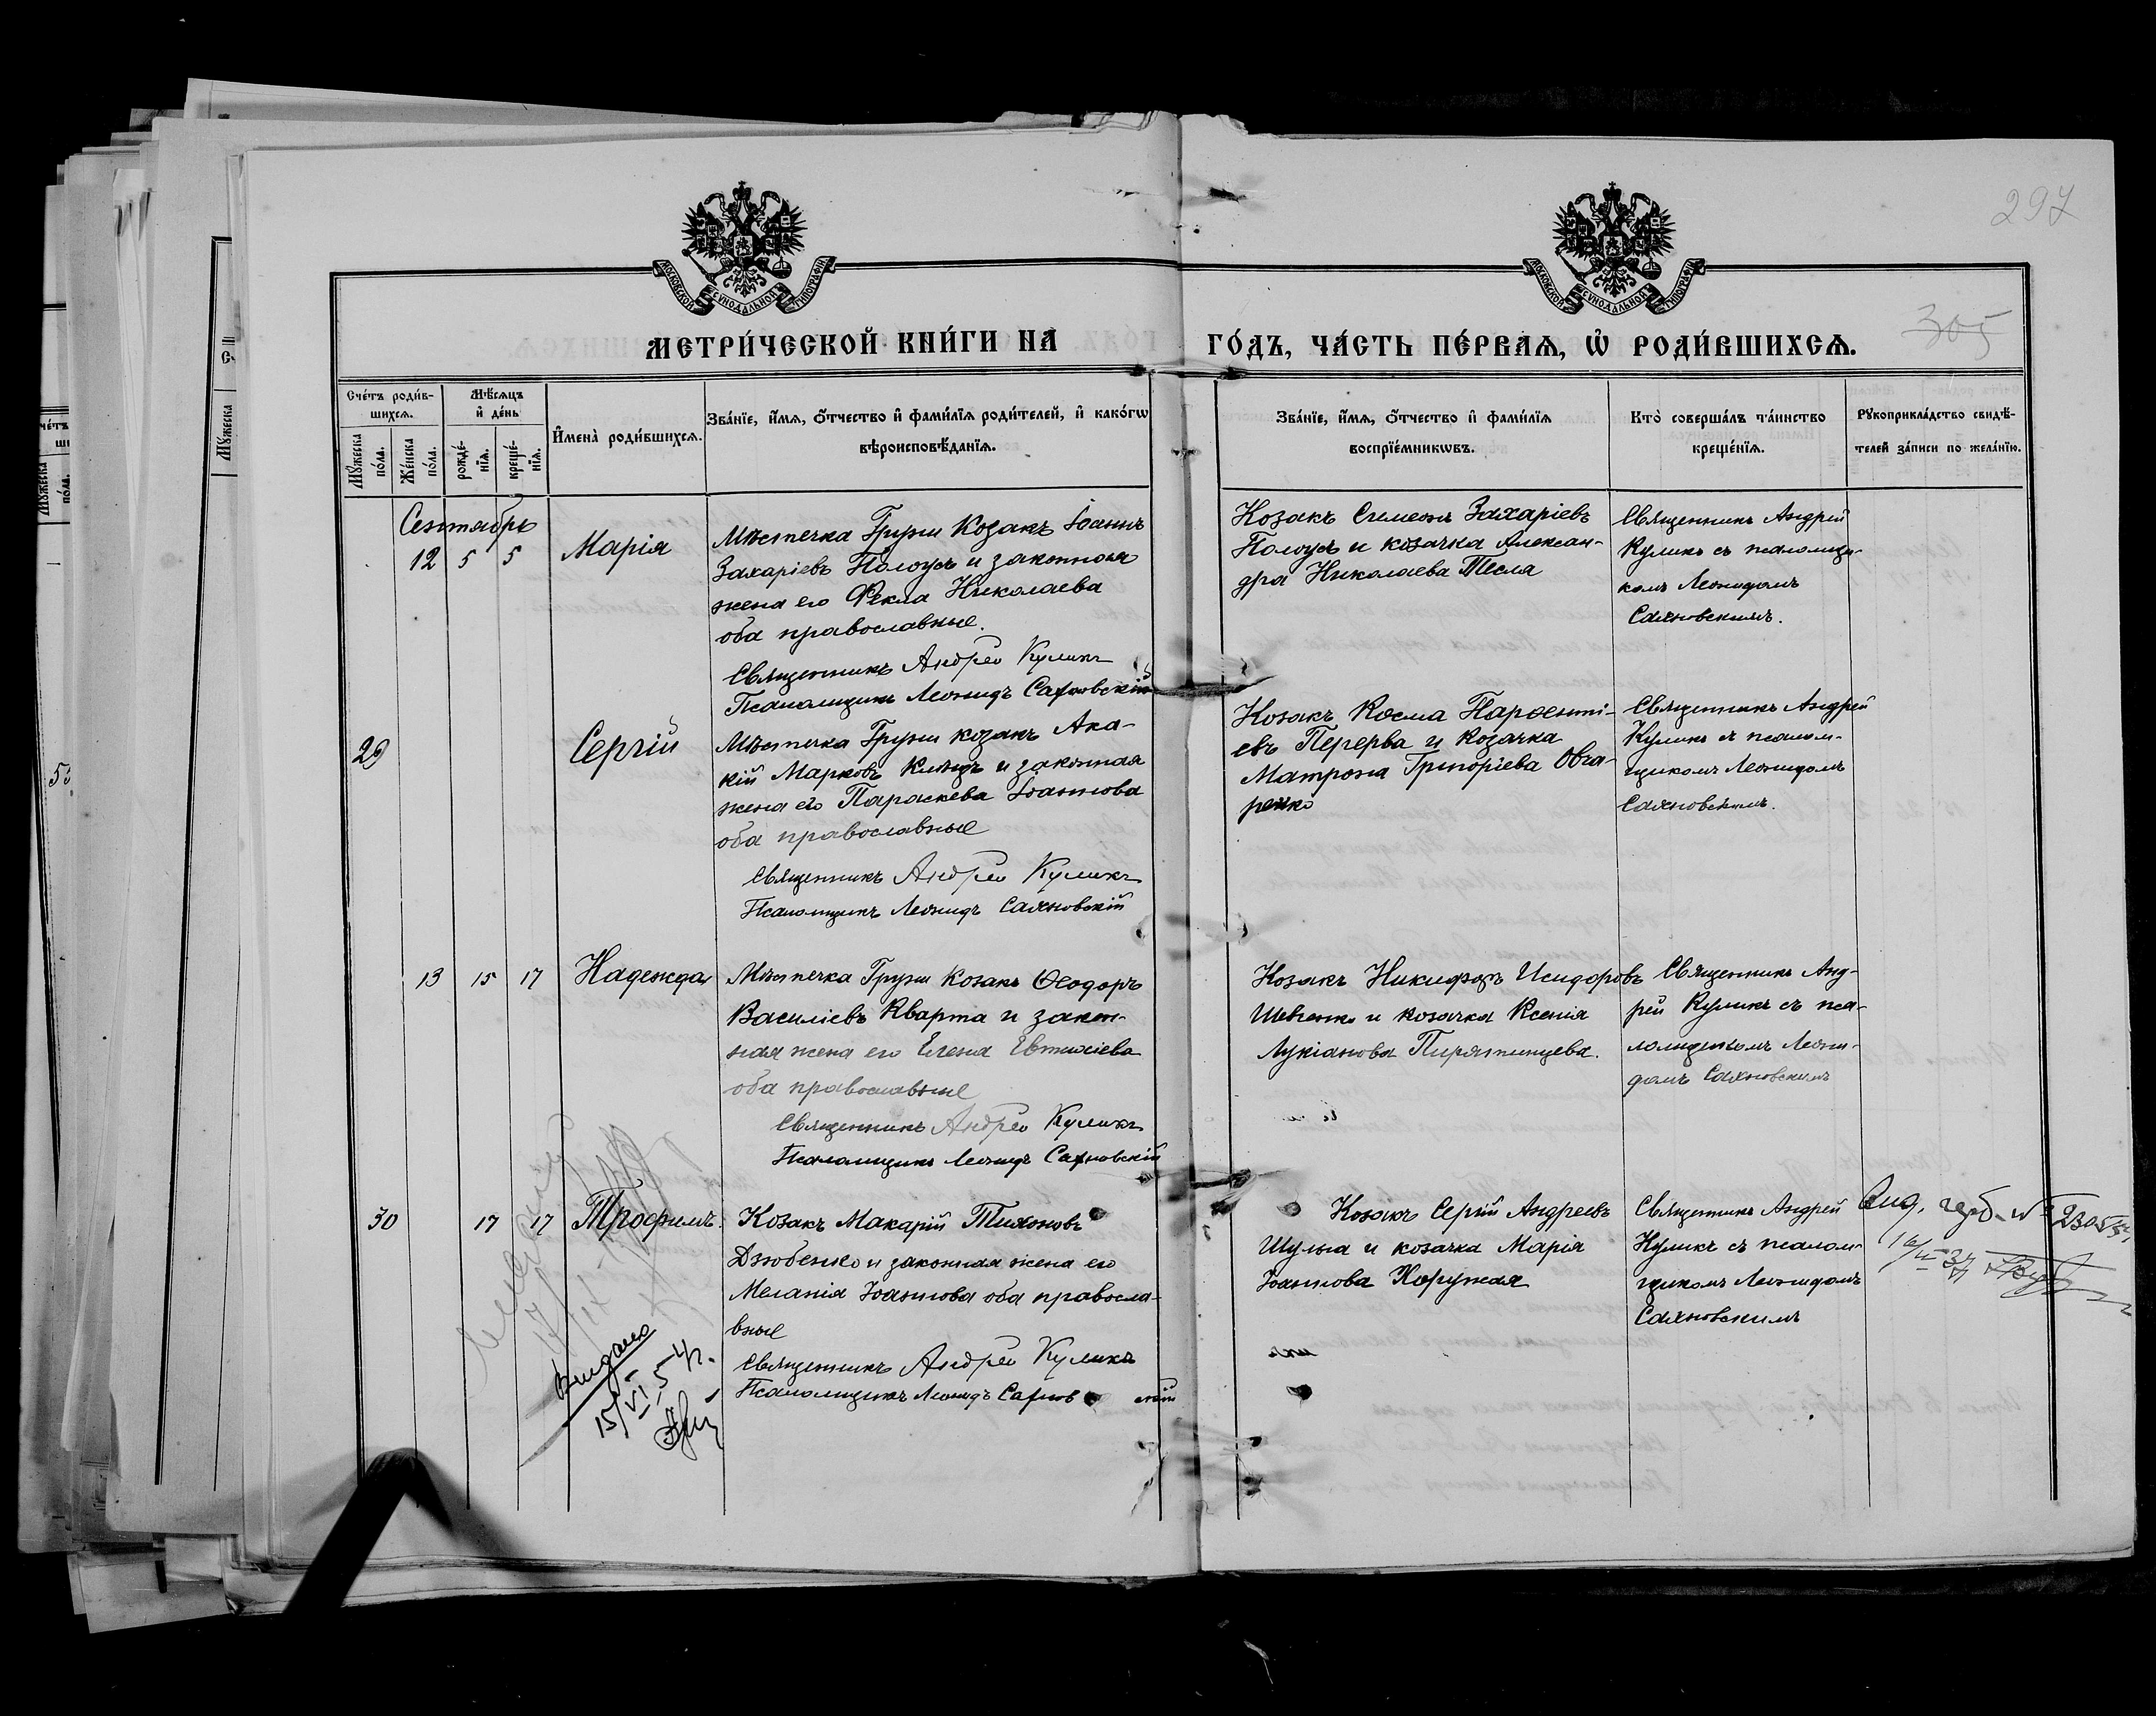 297
305
МОСКОВСКОЙ СУНОДАЛЬНОЙ ТИПОГРАФІИ
МОСКОВСКОЙ СУНОДАЛЬНОЙ ТИПОГРАФІИ
МЕТРИ́ЧЕСКОЙ КНИ́ГИ НА ГО́ДЪ, ЧА́СТЬ ПЕ́РВАЯ, Ѽ РОДИ́ВШИХСЯ.
Сче́тъ роди́в-
шихся.
Мѣ́сяцъ
и҆ де́нь
Мꙋ́жеска
по́ла.
Же́нска
по́ла.
рожде́-
нїя.
креще́-
нїя.
И҆мена̀ роди́вшихся.
Зва́нїе, и҆́мя, ѻ҆́тчество и҆ фами́лїя роди́телей, и҆ како́гѡ
вѣроисповѣ́данїя.
Зва́нїе, и҆́мя, ѻ҆́тчество и҆ фами́лїя
воспрїе́мникѡвъ.
Кто̀ соверша́лъ та́инство
креще́нїя.
Рꙋкоприкла́дство свидѣ́-
телей за́писи по жела́нїю.
Сентябрь
12 5 5 Марія
Мѣстечка Груни Козакъ Іоаннъ
Захаріевъ Полоусъ и законная
жена его Ѳекла Николаева
оба православные.
Священникъ Андрей Куликъ
Псаломщикъ Леонидъ Сахновскій
Козакъ Симеонъ Захаріевъ
Полоусъ и козачка Алексан-
дра Николаева Тесля
Священникъ Андрей
Куликъ съ псаломщи-
комъ Леонидомъ
Сахновскимъ.
29 Сергій
Мѣстечка Груни козакъ Ака-
кій Марковъ и законная
жена его Параскева Іоаннова
оба православные
Священникъ Андрей Куликъ
Псаломщикъ Леонидъ Сахновскій
Козакъ Косма Парѳенті-
евъ Перерва и козачка
Матрона Григоріева Овча-
ренко
Священникъ Андрей
Куликъ съ псалом-
щикомъ Леонидомъ
Сахновскимъ.
13 15 17 Надежда
Мѣстечка Груни Козакъ Ѳеодоръ
Василіевъ Кварта и закон-
ная жена его Елена Евтихіева
оба православные
Священникъ Андрей Куликъ
Псаломщикъ Леонидъ Сахновскій
Козакъ Никифоръ Исидоровъ
Шевченко и козачка Ксенія
Лукіанова Пирятинцева.
Священникъ Анд-
рей Куликъ съ пса-
ломщикомъ Леони-
домъ Сахновскимъ
30 17 17 Трофимъ.
Козакъ Макарій Тихоновъ
Дзюбенко и законная жена его
Меланія Іоаннова оба правосла-
вные
Священникъ Андрей Куликъ
Псаломщикъ Леонидъ Сахнов кій
Козакъ Сергій Андреевъ
Шульга и козачка Марія
Іоаннова Хоружая
Священникъ Андрей
Куликъ съ псалом-
щикомъ Леонидомъ
Сахновскимъ
Видано
15/VI 54 р.